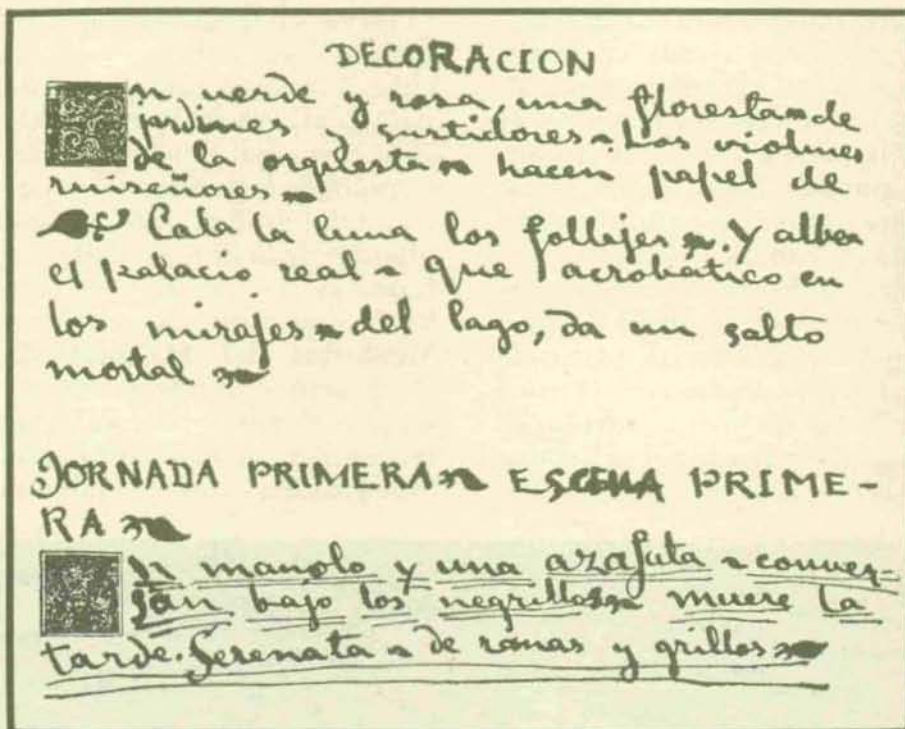 DECORACION
En verde y rosa, una floresta de
jrdines y surtidores. Los violines
de la orquesta hacen papel de
ruiseñores
Cala la luna los follajes. Y albea
el palacio real que acrobático en
los mirajes del lago, da un salto
mortal
JORNADA PRIMERA ESCENA PRIME-
RA
Un manolo y una azafata conver-
san bajo los negrillos muere la
tarde. Serenata de ranas y grillos